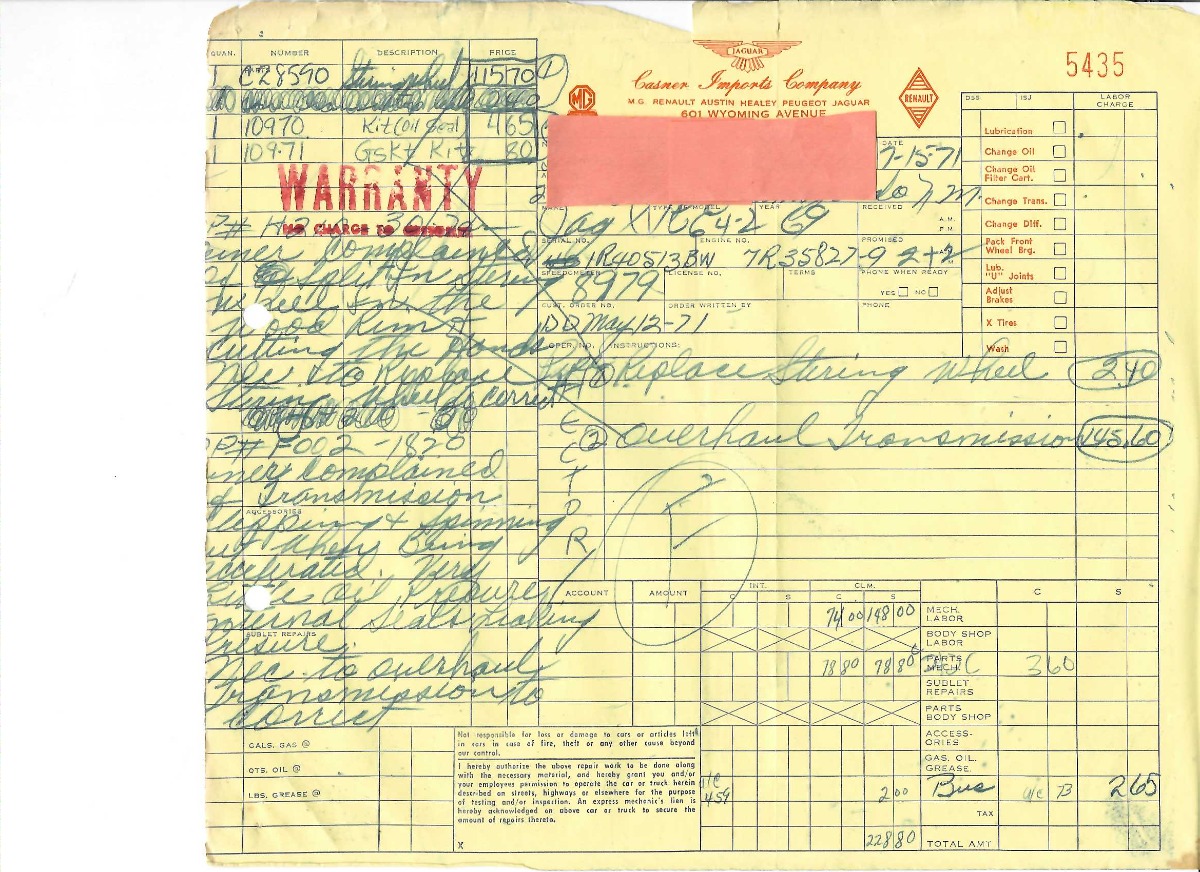 QUAN. NUMBER DESCRIPTION PRICE
1 C28590 Stering Wheel 115 70 ①
1 10970 Kit (Oil Seal) 4 65
1 10971 Gskt Kit 80
WARRANTY
NO CHARGE TO
complained
Split in Stering
Wheel on the
Wood Rim &
Cutting the Hands
Nec. to Replace
Stering Wheel to correct
P# F002-1820
complained
Transmission
ACCESSORIES
Slipping & Spinning
out When Being
Very
Little Oil Presure
Seals Leaking
SUBLET REPAIRS
Presure.
Nec. to overhaul
Transmission to
Correct
GALS. GAS @
QTS. OIL @
LBS. GREASE @
JAGUAR
Casner Imports Company
MG
M.G. RENAULT AUSTIN HEALEY PEUGEOT JAGUAR
601 WYOMING AVENUE
RENAULT
5435
DATE
7-15-71
MAKE TYPE OR MODEL YEAR RECEIVED A.M. P.M.
Jag 69
SERIAL NO. ENGINE NO. PROMISED
1R40513BW 7R35827-9 2+2
SPEEDOMETER LICENSE NO. TERMS PHONE WHEN READY
8979 YES NO
CUST. ORDER NO. ORDER WRITTEN BY PHONE
DD May 12-71
OPER. NO. INSTRUCTIONS:
① Replace Stering Wheel 2.40
② Overhaul Transmission 145.60
E
C
T
O
R
DSS ISJ LABOR CHARGE
Lubrication
Change Oil
Change Oil Filter Cart.
Change Trans.
Change Diff.
Pack Front Wheel Brg.
Lub. "U" Joints
Adjust Brakes
X Tires
Wash
ACCOUNT AMOUNT INT. CLM. C S
C S C S
74 00 148 00 MECH. LABOR
BODY SHOP LABOR
78 80 78 80 PARTS MECH. 3 60
SUBLET REPAIRS
PARTS BODY SHOP
ACCESS-ORIES
GAS. OIL. GREASE
459 2 00 Bus 73 265
TAX
228 80 TOTAL AMT
Not responsible for loss or damage to cars or articles left
in cars in case of fire, theft or any other cause beyond
our control.
I hereby authorize the above repair work to be done along
with the necessary material, and hereby grant you and/or
your employees permission to operate the car or truck herein
described on streets, highways or elsewhere for the purpose
of testing and/or inspection. An express mechanic's lien is
hereby acknowledged on above car or truck to secure the
amount of repairs thereto.
X